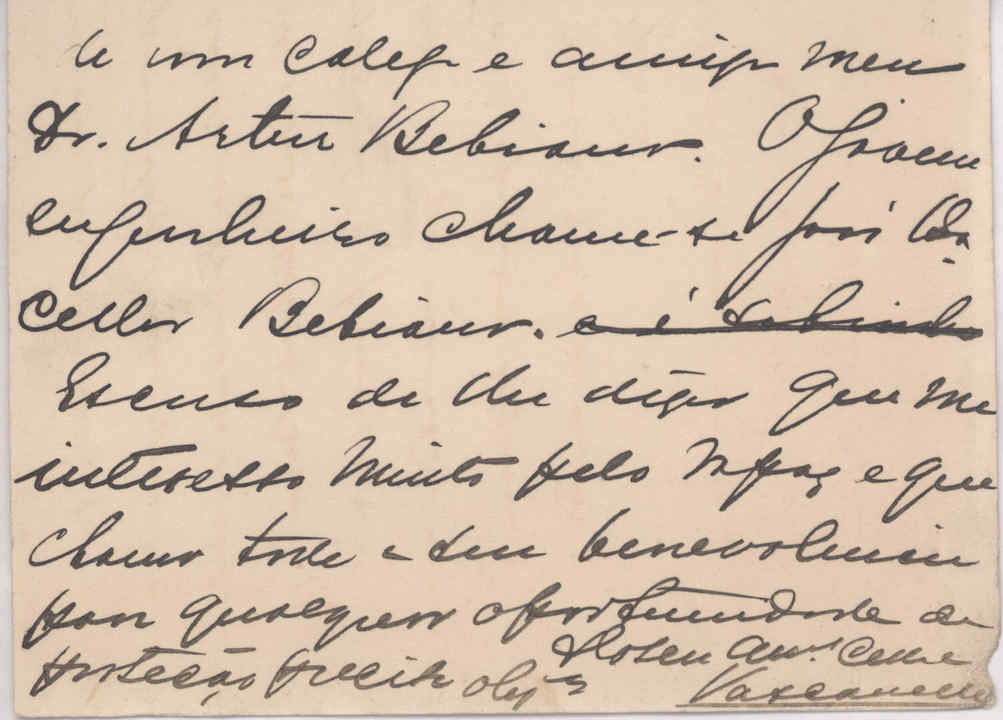 de um colega e amigo meu
Dr. Artur Bebiano. O jovem
engenheiro chama-se José Ba
cellar Bebiano. e é sobrinho
Escuso de lhe dizer que me
interesso muito pelo rapaz e que
chamo toda a sua benevolencia
para qualquer oportunidade de
proteção
obg.º
Vasconcellos